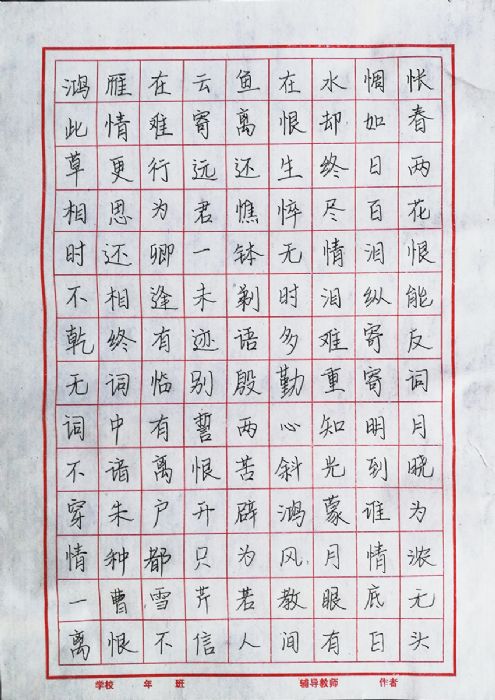 鸿雁在云鱼在水惆怅
此情难寄离恨却如春
草更行远还生终日两
相思为君憔悴尽百花
时还卿一钵无情泪恨
不相逢未剃时泪纵能
乾终有迹语多难寄反
无词临别殷勤重寄词
词中有誓两心知明月
不谙离恨苦斜光到晓
穿朱户开辟鸿蒙谁为
情种都只为风月情浓
一曹雪芹若教眼底无
离恨不信人间有白头
学校 年 班 辅导教师 作者